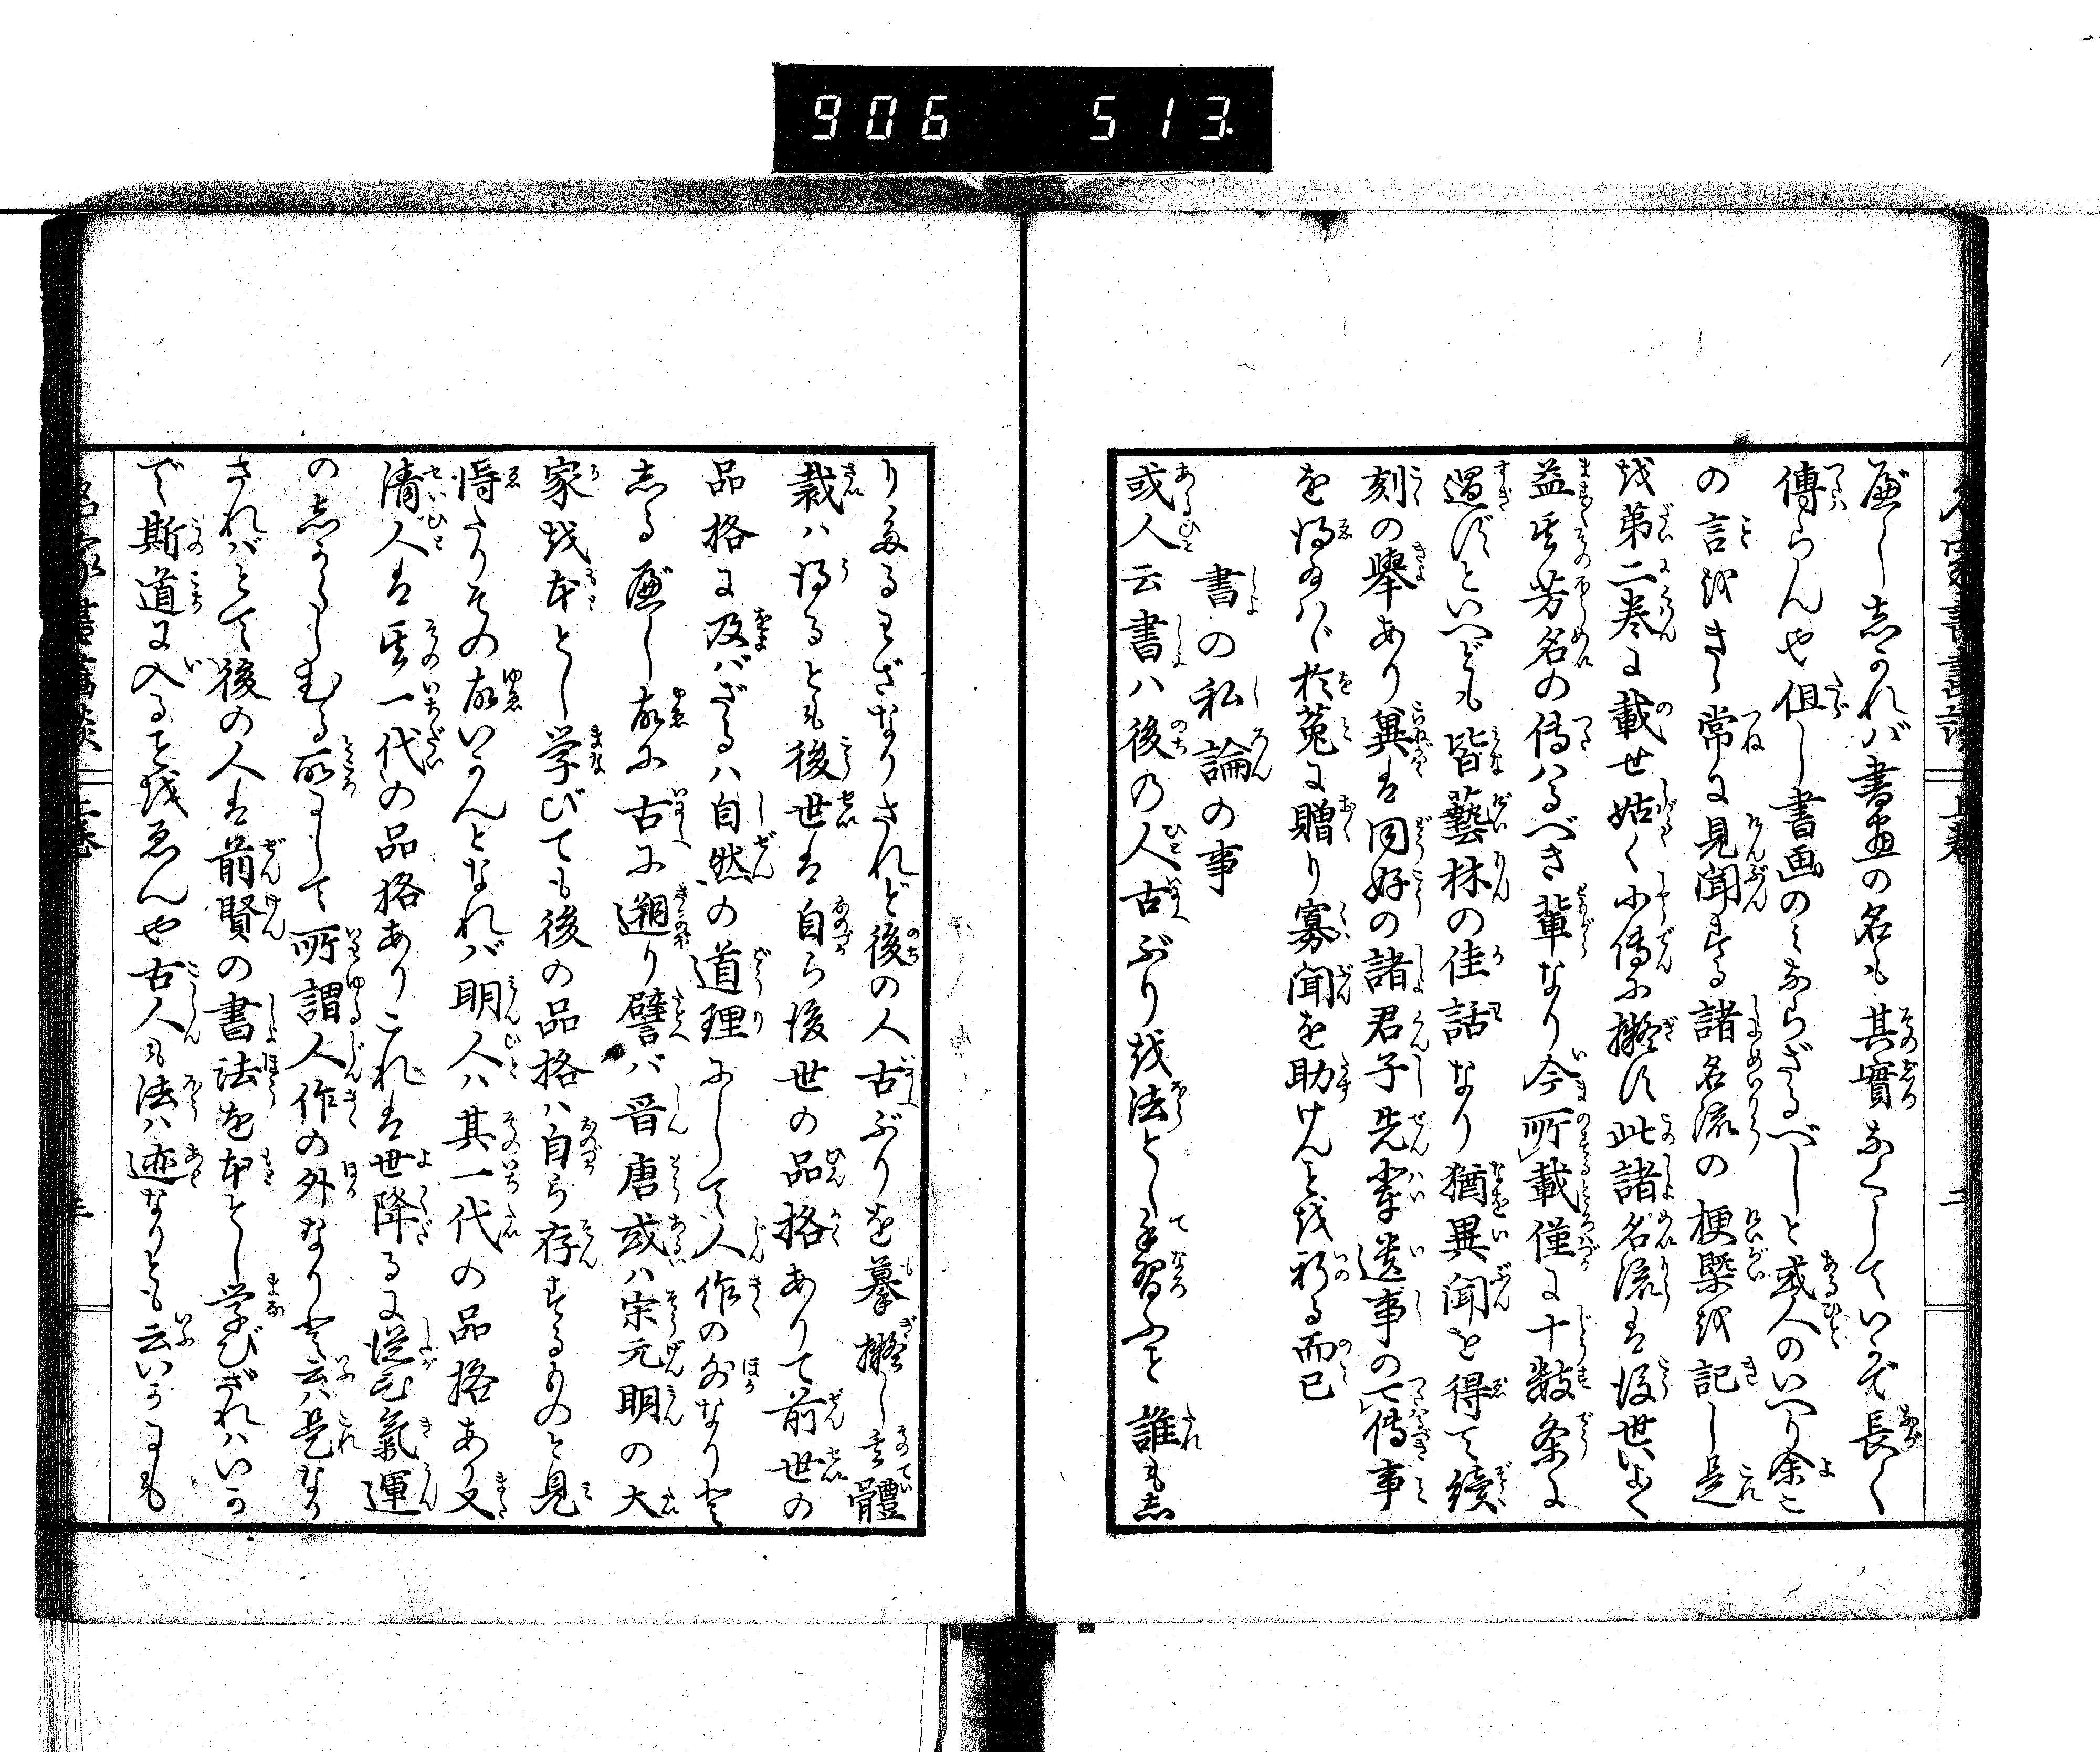 906 513
べししかれバ書画の名も其實なくしていかで長く
傳らんや但し書画のミならざるべしと或人のいへり余こ
の言をきゝ常に見聞する諸名流の梗槩を記し是
を第二巻に載せ姑く小傳に擬す此諸名流は後世いよ〱
益其芳名の傳ハるべき輩なり今所載僅に十数条に
過ずといへども皆藝林の佳話なり猶異聞を得て續
刻の舉あり冀くは同好の諸君子先輩遺事の可傳事
を得玉ハヾ於菟に贈り寡聞を助けんことを祈る而已
書の私論の事
或人云書ハ後の人古ぶりを法とし手習ふこと誰も志
りたるわざなりされど後の人古ぶりを摹擬し其體
裁ハ得るとも後世は自ら後世の品格ありて前世の
品格に及バざるハ自然の道理にして人作の外なりと
志るべし故に古に遡り譬バ晋唐或ハ宋元明の大
家を本とし学びても後の品格ハ自ら存するものと見
得たりその故いかんとなれバ明人ハ其一代の品格あり又
清人は其一代の品格ありこれは世降るに従ひ氣運
の志からしむる所にして所謂人作の外なりと云ハ是なり
されバとて後の人は前賢の書法を本とし学びざれハいか
で斯道に入ることを得んや古人も法ハ迹なりとも云いかにも